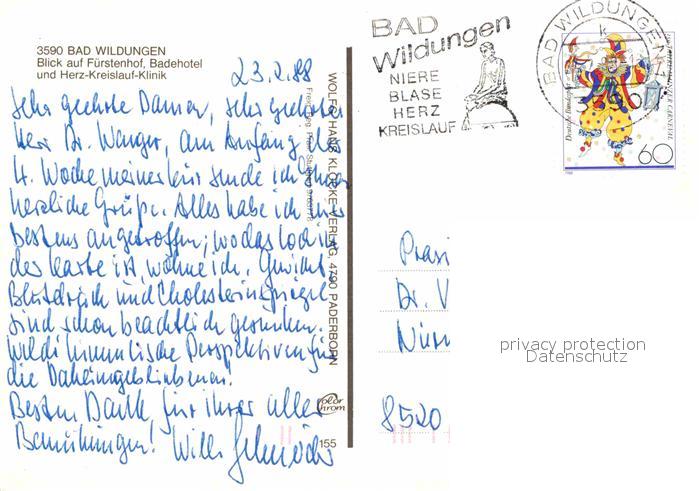 3590 BAD WILDUNGEN
Blick auf Fürstenhof, Badehotel
und Herz-Kreislauf-Klinik
23.2.88
Sehr geehrte Damen, sehr geehrter
Herr Dr. Wenger, am Anfang der
4. Woche meiner Kur sende ich
herzliche Grüße. Alles habe ich hier
bestens angetroffen; wo das Loch in
der Karte ist, wohne ich. Gewicht
Blutdruck und Cholesterinspiegel
sind schon beachtlich gesunken.
Perspektiven für
die Daheimgebliebenen!
Besten Dank für Ihrer aller
Bemühungen! Willi
WOLFGANG HANS KLOCKE VERLAG, 4790 PADERBORN
color
chrom
155
BAD
Wildungen
NIERE
BLASE
HERZ
KREISLAUF
BAD WILDUNGEN
Deutsche Bundespost
60
Praxi
Dr. V
8520
privacy protection
Datenschutz